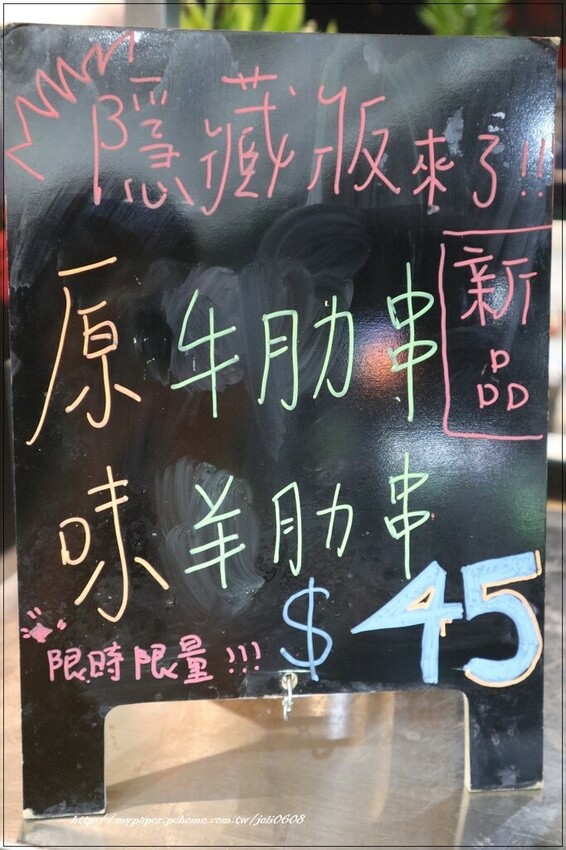 隱藏版來了!!
新品
原味
牛肋串
羊肋串
限時限量!!!
$45
http://mypaper.pchome.com.tw/joli0608